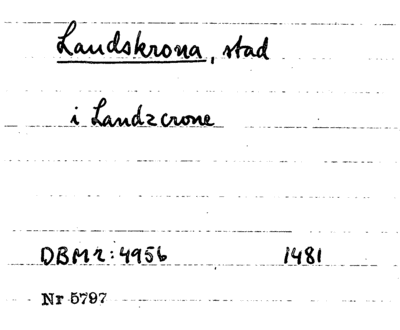 Landskrona, stad
i Landzcrone
DBM 2:4956 1481
Nr 5797